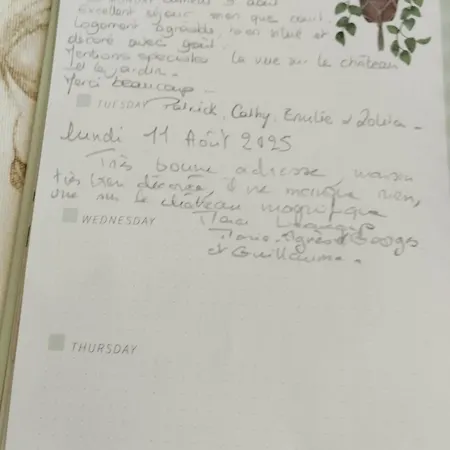 Excellent séjour, rien que
Logement agréable, bien situé et
décoré avec goût.
Mentions spéciales la vue sur le château
et le jardin.
Merci beaucoup -
TUESDAY Patrick, Cathy, Emilie
lundi 11 Août 2025
Très bonne adresse, maison
très bien décorée, il ne manque rien,
vue sur le château magnifique
WEDNESDAY
Marie-Agnès Georges
et Guillaume.
THURSDAY